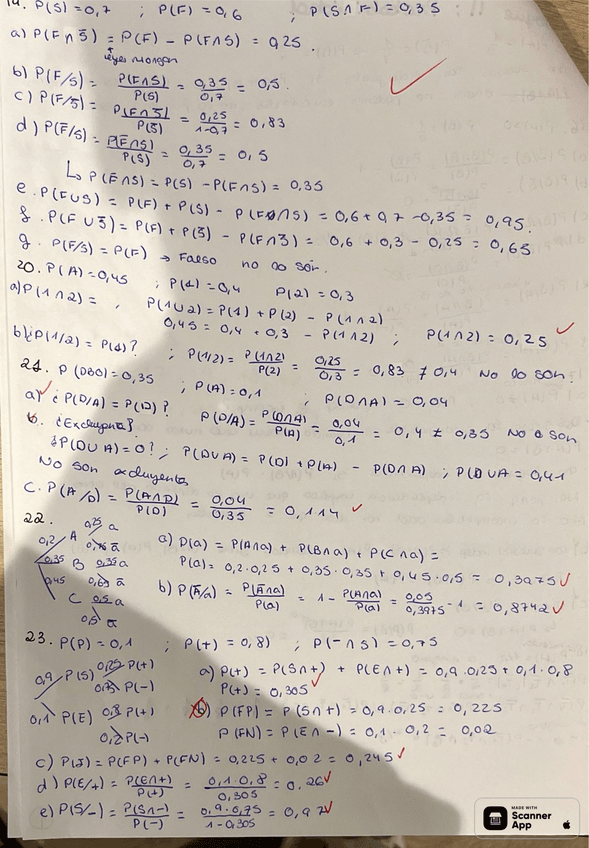 19. P(S)=0,7 ; P(F)=0,6 ; P(S∩F)=0,35
a) P(F∩S̅) = P(F) - P(F∩S) = 0,25.
leyes morgan
b) P(F/S) = P(F∩S)/P(S) = 0,35/0,7 = 0,5.
c) P(F/S̅) = P(F∩S̅)/P(S̅) = 0,25/1-0,7 = 0,83
d) P(F̅/S) = P(F̅∩S)/P(S) = 0,35/0,7 = 0,5
↳ P(F̅∩S) = P(S) - P(F∩S) = 0,35
e. P(F∪S) = P(F) + P(S) - P(F∩S) = 0,6+0,7-0,35 = 0,95.
f. P(F∪S̅) = P(F) + P(S̅) - P(F∩S̅) = 0,6 + 0,3 - 0,25 = 0,65
g. P(F/S) = P(F) → Falso no lo són.
20. P(A)=0,45 ; P(1)=0,4 P(2)=0,3
a) P(1∩2) = , P(1∪2) = P(1) + P(2) - P(1∩2)
0,45 = 0,4 + 0,3 - P(1∩2) ; P(1∩2) = 0,25
b) ¿P(1/2) = P(1)? ; P(1/2) = P(1∩2)/P(2) = 0,25/0,3 = 0,83 ≠ 0,4 No lo son.
21. P(DBO) = 0,35 ; P(A) = 0,1 ; P(D∩A) = 0,04
a) ¿P(D/A) = P(D)? P(D/A) = P(D∩A)/P(A) = 0,04/0,1 = 0,4 ≠ 0,35 No lo son
b. ¿Excluyentes?
¿P(D∪A) = 0? ; P(D∪A) = P(D) + P(A) - P(D∩A) ; P(D∪A = 0,41
No son excluyentes
C. P(A/D) = P(A∩D)/P(D) = 0,04/0,35 = 0,114
22.
0,2 A 0,25 a
a̅
0,35 B 0,35 a
0,65 a̅
0,45 C 0,5 a
0,5 a̅
a) P(a) = P(A∩a) + P(B∩a) + P(C∩a) =
P(a) = 0,2·0,25 + 0,35·0,35 + 0,45·0,5 = 0,3975
b) P(A̅/a) = P(A̅∩a)/P(a) = 1 - P(A∩a)/P(a) = 0,05/0,3975 - 1 = 0,8742
23. P(P) = 0,1 ; P(+) = 0,8) ; P(-∩S) = 0,75
0,9 P(S) 0,25 P(+)
0,75 P(-)
0,1 P(E) 0,8 P(+)
0,2 P(-)
a) P(+) = P(S∩+) + P(E∩+) = 0,9·0,25+0,1·0,8
P(+) = 0,305
b) P(FP) = P(S∩+) = 0,9·0,25 = 0,225
P(FN) = P(E∩-) = 0,1·0,2 = 0,02
c) P(I) = P(FP) + P(FN) = 0,225 + 0,02 = 0,245
d) P(E/+) = P(E∩+)/P(+) = 0,1·0,8/0,305 = 0.26
e) P(S/-) = P(S∩-)/P(-) = 0,9·0,75/1-0,305 = 0,97
MADE WITH
Scanner
App